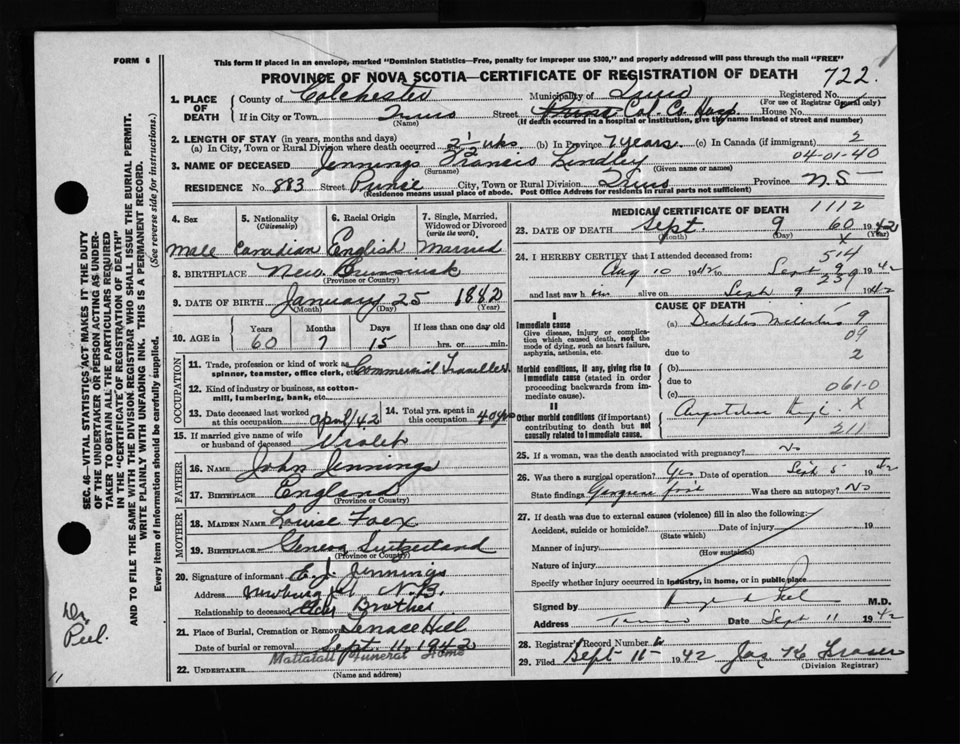 FORM 6
This form if placed in an envelope, marked "Dominion Statistics—Free, penalty for improper use $300," and properly addressed will pass through the mail "FREE"
PROVINCE OF NOVA SCOTIA—CERTIFICATE OF REGISTRATION OF DEATH 722.
1. PLACE OF DEATH
County of Colchester Municipality of Truro Registered No.
(For use of Registrar General only)
If in City or Town Truro Street Prince Col. Co. Hosp House No.
(Name) (If death occurred in a hospital or institution, give the name instead of street and number)
2. LENGTH OF STAY (in years, months and days)
(a) In City, Town or Rural Division where death occurred 2½ wks (b) In Province 7 years. (c) In Canada (if immigrant)
2
04-01-40
3. NAME OF DECEASED Jennings Francis Lindley
(Surname) (Given name or names)
RESIDENCE No. 883 Street Prince City, Town or Rural Division Truro Province N.S
(Residence means usual place of abode. Post Office Address for residents in rural parts not sufficient)
4. Sex 5. Nationality (Citizenship) 6. Racial Origin 7. Single, Married, Widowed or Divorced (write the word)
Male Canadian English Married
8. BIRTHPLACE New Brunswick
(Province or Country)
9. DATE OF BIRTH January 25 1882
(Month) (Day) (Year)
10. AGE in Years Months Days If less than one day old
60 7 15 hrs. or min.
OCCUPATION
11. Trade, profession or kind of work as spinner, teamster, office clerk, etc. Commercial Traveller
12. Kind of industry or business, as cotton-mill, lumbering, bank, etc.
13. Date deceased last worked at this occupation April/42 14. Total yrs. spent in this occupation 40 yrs
15. If married give name of wife or husband of deceased
FATHER
16. NAME John Jennings
17. BIRTHPLACE England
(Province or Country)
MOTHER
18. MAIDEN NAME Louise
19. BIRTHPLACE Geneva Switzerland
(Province or Country)
20. Signature of informant Jennings
Address N.B.
Relationship to deceased Brother
21. Place of Burial, Cremation or Removal Terrace Hill
Date of burial or removal Sept. 11, 1942
22. UNDERTAKER Mattatall Funeral Home
(Name and address)
MEDICAL CERTIFICATE OF DEATH 1112
23. DATE OF DEATH Sept. 9 60 1942
(Month) (Day) (Year)
X
24. I HEREBY CERTIFY that I attended deceased from: 514
Aug 10 1942 to Sept 9 1942
239
and last saw him alive on Sept 9 1942
CAUSE OF DEATH
I
Immediate cause
Give disease, injury or complication which caused death, not the mode of dying, such as heart failure, asphyxia, asthenia, etc.
(a) Diabetes Mellitus 9
09
due to 2
Morbid conditions, if any, giving rise to immediate cause (stated in order proceeding backwards from immediate cause).
(b)
due to
(c) 061-0
II
Other morbid conditions (if important) contributing to death but not causally related to immediate cause.
X
211
25. If a woman, was the death associated with pregnancy? No
26. Was there a surgical operation? Yes Date of operation Sept 5 1942
State findings Was there an autopsy? No
27. If death was due to external causes (violence) fill in also the following:
Accident, suicide or homicide? Date of injury 19
(State which)
Manner of injury
(How sustained)
Nature of injury
Specify whether injury occurred in industry, in home, or in public place
Signed by Peel M.D.
Address Truro Date Sept 11 1942
28. Registrar's Record Number
29. Filed Sept 11 1942 Jas K Fraser
(Division Registrar)
SEC. 46—VITAL STATISTICS ACT MAKES IT THE DUTY
OF THE UNDERTAKER OR PERSON ACTING AS UNDER-
TAKER TO OBTAIN ALL THE PARTICULARS REQUIRED
IN THE "CERTIFICATE OF REGISTRATION OF DEATH"
AND TO FILE THE SAME WITH THE DIVISION REGISTRAR WHO SHALL ISSUE THE BURIAL PERMIT.
WRITE PLAINLY WITH UNFADING INK. THIS IS A PERMANENT RECORD.
Every item of information should be carefully supplied. (See reverse side for instructions.)
Dr. Peel.
11